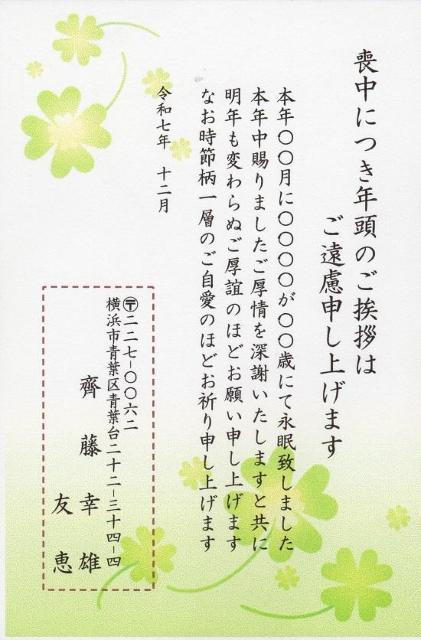 喪中につき年頭のご挨拶は
ご遠慮申し上げます
本年〇〇月に〇〇〇〇が〇〇歳にて永眠致しました
本年中賜りましたご厚情を深謝いたしますと共に
明年も変わらぬご厚誼のほどお願い申し上げます
なお時節柄一層のご自愛のほどお祈り申し上げます
令和七年 十二月
〶二二七-〇〇六二
横浜市青葉区青葉台二十二-三十四-四
齊藤幸雄
友恵